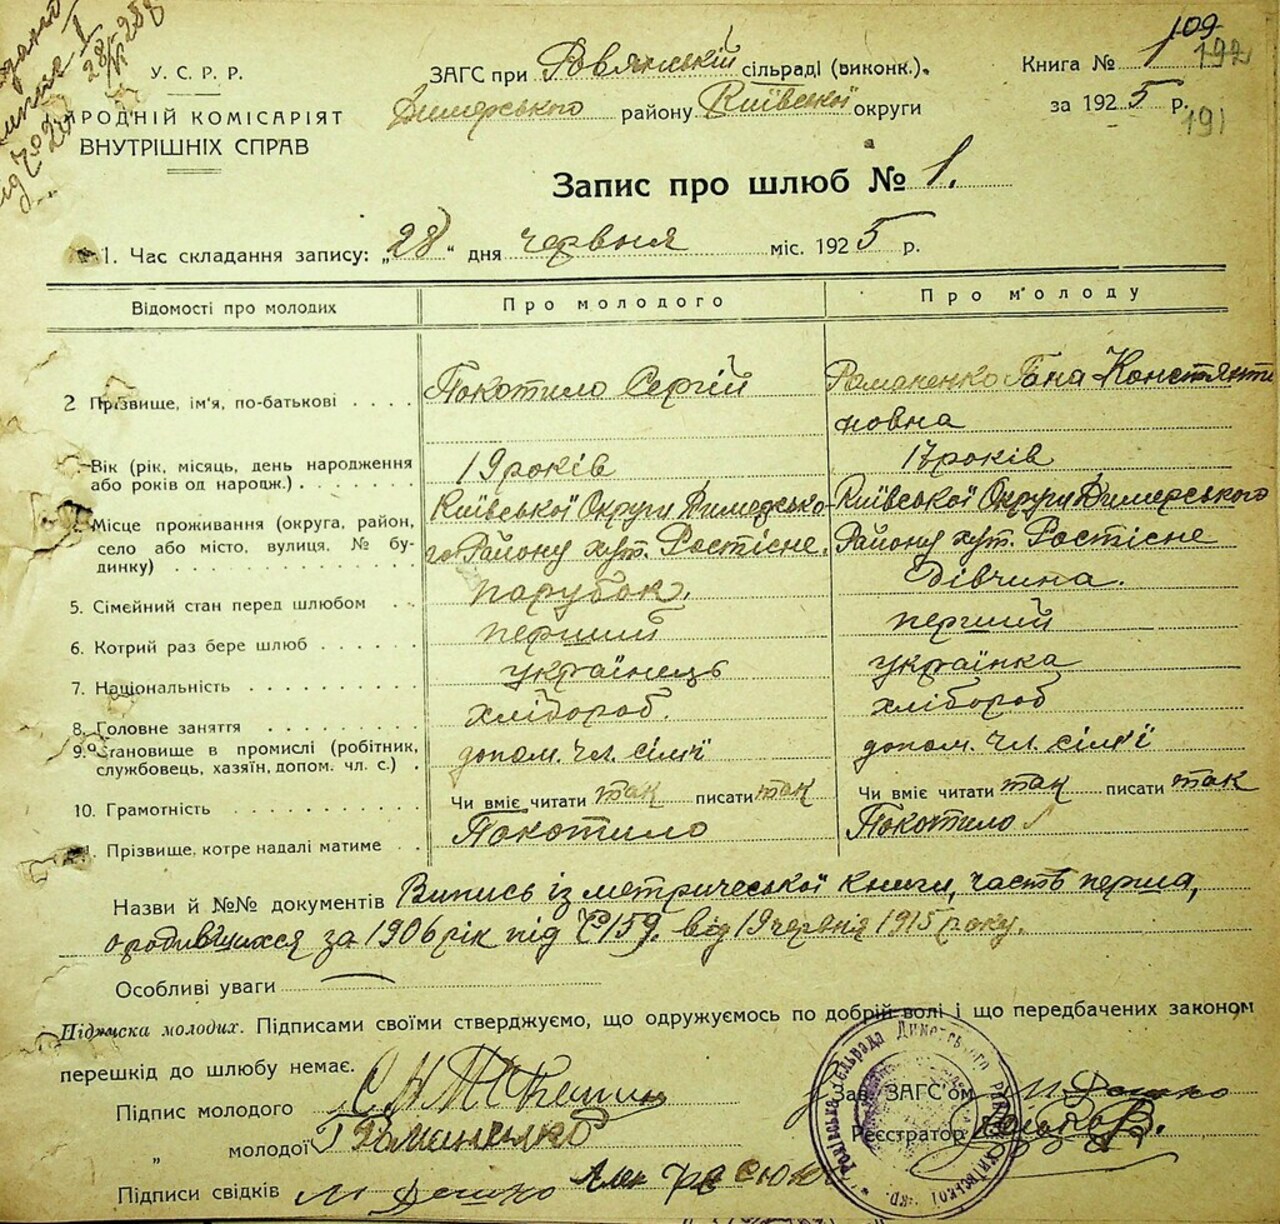 109
192
191
У. С. Р. Р.
НАРОДНІЙ КОМІСАРІЯТ
ВНУТРІШНІХ СПРАВ
ЗАГС при Ровянській сільраді (виконк.).
Димерського району Київської округи
Книга № 1
за 1925 р.
Запис про шлюб № 1.
1. Час складання запису: „28" дня червня міс. 1925 р.
Відомості про молодих
Про молодого
Про молоду
2 Прізвище, ім'я, по-батькові
Покотило Сергій
Романенко Гана Констянти
новна
Вік (рік, місяць, день народження
або років од народж.)
19 років
17 років
Місце проживання (округа, район,
село або місто, вулиця, № бу-
динку)
Київської Округи Димерсько-
го Району хут. Ростісне.
Київської Округи Димерського
Району хут. Ростісне
5. Сімейний стан перед шлюбом
парубок.
дівчина.
6. Котрий раз бере шлюб
перший
перший
7. Національність
українець
українка
8. Головне заняття
хлібороб.
хлібороб
9. Становище в промислі (робітник,
службовець, хазяїн, допом. чл. с.)
допом. чл. сім'ї
допом. чл. сім'ї
10. Грамотність
Чи вміє читати так писати так
Чи вміє читати так писати так
11. Прізвище, котре надалі матиме
Покотило
Покотило
Назви й №№ документів Випись із метрической книги, часть перша,
о родившихся за 1906 рік під № 159. від 19 червня 1915 року.
Особливі уваги
Підписка молодих. Підписами своїми стверджуємо, що одружуємось по добрій волі і що передбачених законом
перешкід до шлюбу немає.
Підпис молодого
„ молодої Г Романенко
Підписи свідків
Зав. ЗАГС'ом
Реєстратор